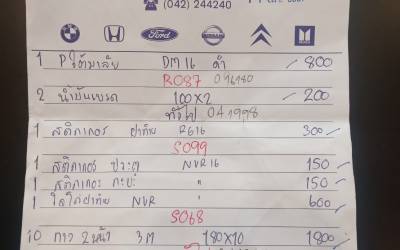 (042) 244240
HONDA Ford NISSAN ISUZU
1 P ใต้มาลัย DM16 ดำ 800
R087 046140
2 น้ำมันเบรค 100x2 200
ทั่วไป 041998
1 สติกเกอร์ ฝาท้าย R616 300
S099
1 สติกเกอร์ ประตู NVR16 150
1 สติกเกอร์ กะบะ " 150
1 โลโก้ฝาท้าย NVR 600
S068
10 กาว 2 หน้า 3M 180x10 1800